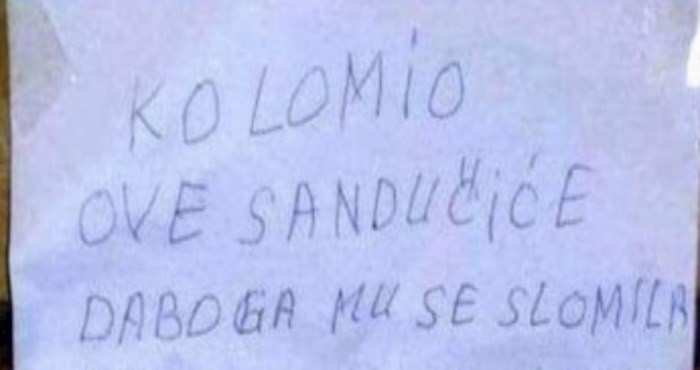 KO LOMIO
OVE SANDUČIĆE
DABOGA MU SE SLOMILA